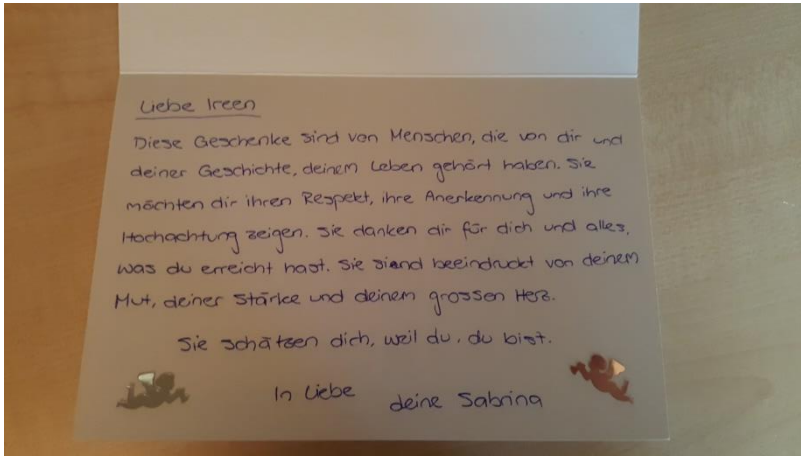 Liebe Ireen
Diese Geschenke sind von Menschen, die von dir und
deiner Geschichte, deinem Leben gehört haben. Sie
möchten dir ihren Respekt, ihre Anerkennung und ihre
Hochachtung zeigen. Sie danken dir für dich und alles,
was du erreicht hast. Sie siand beeindruckt von deinem
Mut, deiner Stärke und deinem grossen Herz.
Sie schätzen dich, weil du, du bist.
In Liebe deine Sabrina